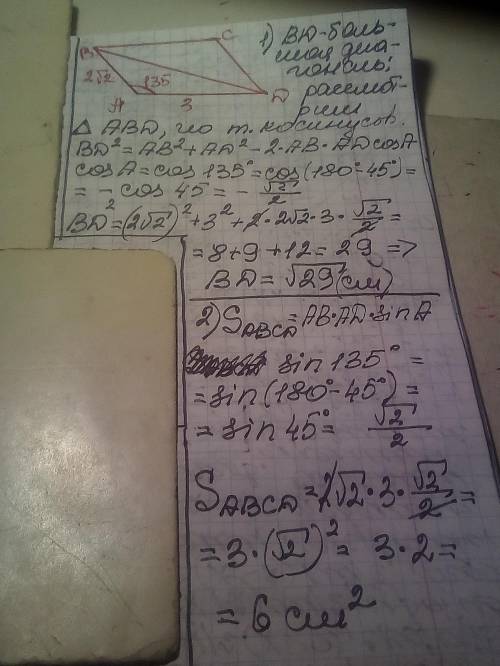 B
C
2√2
135
A
3
D
1) BD-боль-
шая диа-
гональ.
рассмот-
рим
△ ABD, по т. косинусов.
BD²=AB²+AD²-2·AB·AD cosA
cosA=cos135°=cos(180°-45°)=
=-cos 45=-√2/2
BD²=(2√2)²+3²+2·2√2·3·√2/2=
=8+9+12=29 =>
BD=√29 (см)
2) S_ABCD=AB·AD·sinA
sin 135°=
=sin(180°-45°)=
=sin45°= √2/2
S_ABCD=2√2·3·√2/2=
=3·(√2)²= 3·2=
=6 см²